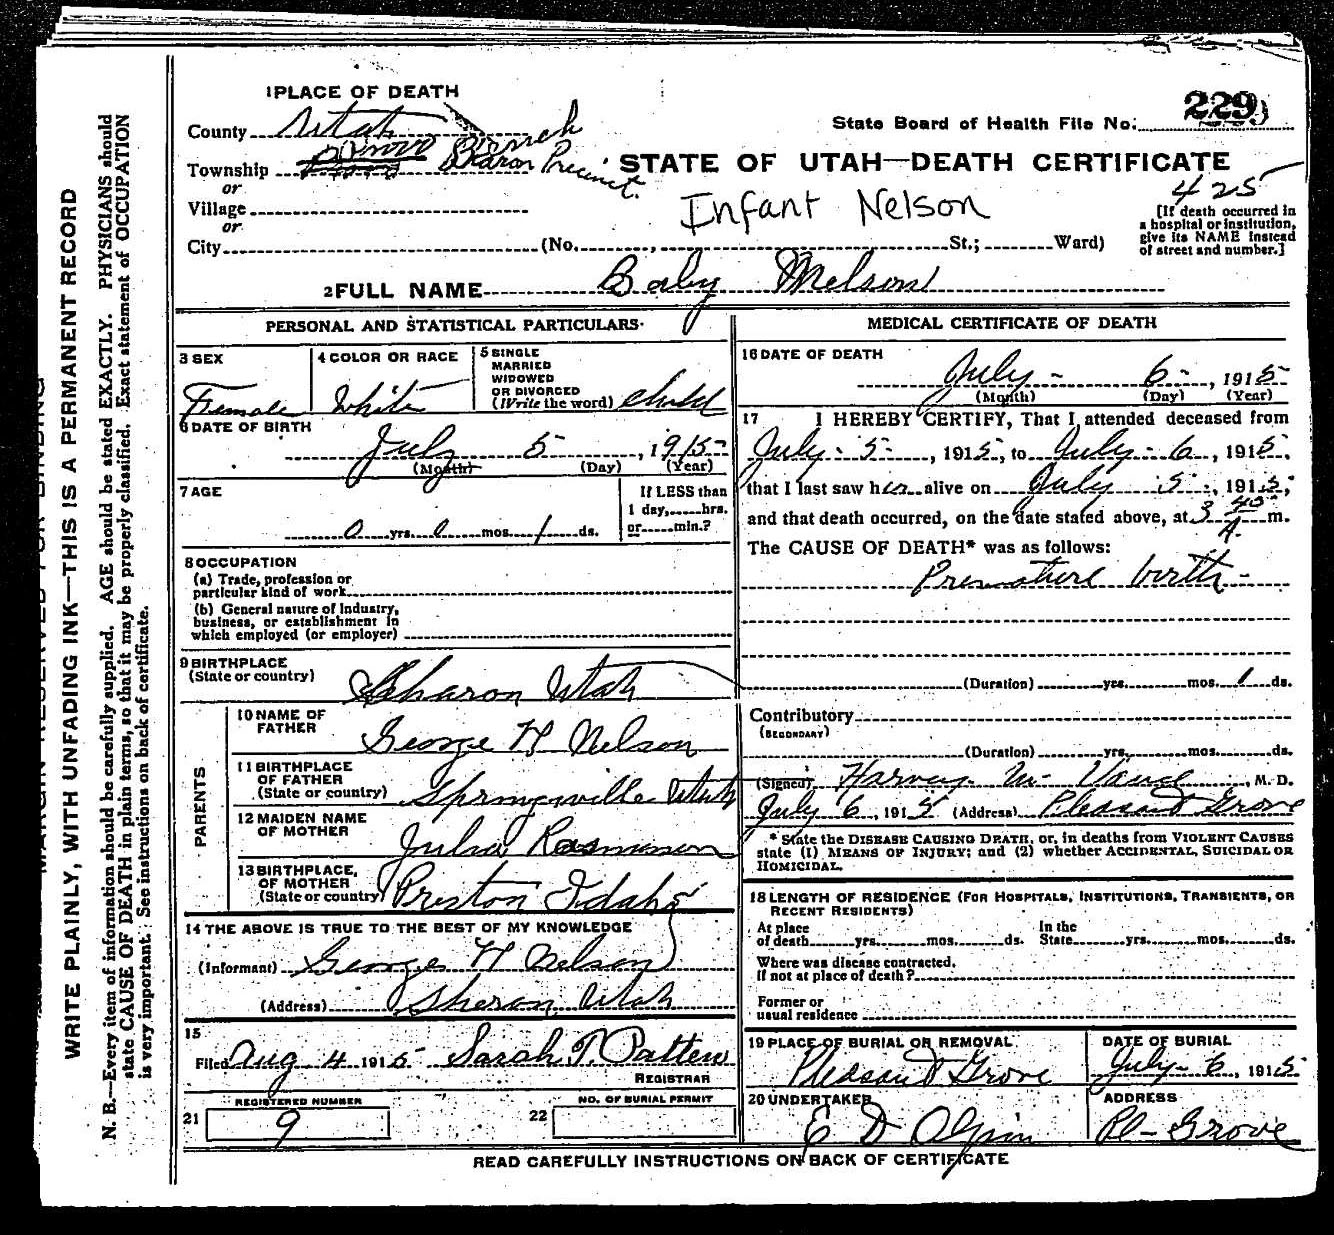 1 PLACE OF DEATH
County Utah
State Board of Health File No. 229
Township Provo Bench
or Sharon Precinct.
STATE OF UTAH—DEATH CERTIFICATE
425
Village
or
Infant Nelson
[If death occurred in
a hospital or institution,
give its NAME instead
of street and number.]
City (No. , St.; Ward)
2 FULL NAME Baby Nelson
PERSONAL AND STATISTICAL PARTICULARS
3 SEX
Female
4 COLOR OR RACE
White
5 SINGLE
MARRIED
WIDOWED
OR DIVORCED
(Write the word) child
6 DATE OF BIRTH
July 5, 1915
(Month) (Day) (Year)
7 AGE
0 yrs. 0 mos. 1 ds.
If LESS than
1 day, hrs.
or min.?
8 OCCUPATION
(a) Trade, profession or
particular kind of work
(b) General nature of Industry,
business, or establishment in
which employed (or employer)
9 BIRTHPLACE
(State or country) Sharon Utah
PARENTS
10 NAME OF
FATHER George H Nelson
11 BIRTHPLACE
OF FATHER
(State or country) Springville Utah
12 MAIDEN NAME
OF MOTHER Julia Rasmussen
13 BIRTHPLACE,
OF MOTHER
(State or country) Preston Idaho
14 THE ABOVE IS TRUE TO THE BEST OF MY KNOWLEDGE
(Informant) George H Nelson
(Address) Sharon Utah
15
Filed Aug 4 1915 Sarah T. Patten
REGISTRAR
REGISTERED NUMBER
21 9
NO. OF BURIAL PERMIT
22
MEDICAL CERTIFICATE OF DEATH
16 DATE OF DEATH
July - 6 - , 1915
(Month) (Day) (Year)
17 I HEREBY CERTIFY, That I attended deceased from
July - 5 - , 1915, to July - 6 , 1915,
that I last saw her alive on July 5 - , 1915,
and that death occurred, on the date stated above, at 3 45 A. m.
The CAUSE OF DEATH* was as follows:
Premature birth -
(Duration) yrs. mos. 1 ds.
Contributory
(SECONDARY)
(Duration) yrs. mos. ds.
(Signed) Harvey M. Vance , M. D.
July 6, 1915 (Address) Pleasant Grove
* State the DISEASE CAUSING DEATH, or, in deaths from VIOLENT CAUSES
state (1) MEANS OF INJURY; and (2) whether ACCIDENTAL, SUICIDAL OR
HOMICIDAL.
18 LENGTH OF RESIDENCE (FOR HOSPITALS, INSTITUTIONS, TRANSIENTS, OR
RECENT RESIDENTS)
At place
of death yrs. mos. ds.
In the
State yrs. mos. ds.
Where was disease contracted,
if not at place of death?
Former or
usual residence
19 PLACE OF BURIAL OR REMOVAL
Pleasant Grove
DATE OF BURIAL
July - 6 , 1915
20 UNDERTAKER
E D Olpin
ADDRESS
Pl - Grove
READ CAREFULLY INSTRUCTIONS ON BACK OF CERTIFICATE
WRITE PLAINLY, WITH UNFADING INK—THIS IS A PERMANENT RECORD
N. B.—Every item of information should be carefully supplied. AGE should be stated EXACTLY. PHYSICIANS should
state CAUSE OF DEATH in plain terms, so that it may be properly classified. Exact statement of OCCUPATION
is very important. See instructions on back of certificate.